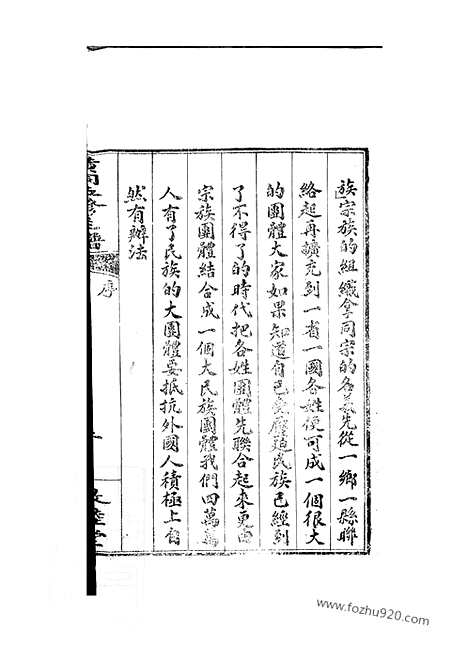 族宗族的組織拿同宗的各姓先從一鄉一縣聯
絡起再擴充到一省一國各姓便可成一個很大
的團體大家如果知道自己受壓迫民族已經到
了不得了的時代把各姓團體先聯合起來更由
宗族團體結合成一個大民族團體我們四萬萬
人有了民族的大團體要抵抗外國人積極上自
然有辦法
修譜
序
敦睦堂
www.fozhu920.com